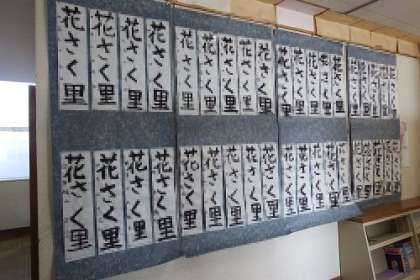 花さく里
花さく里
花さく里
花さく里
花さく里
花さく里
花さく里
花さく里
花さく里
花さく里
花さく里
花さく里
花さく里
花さく里
花さく里
花さく里
花さく里
花さく里
花さく里
花さく里
花さく里
花さく里
花さく里
花さく里
花さく里
花さく里
花さく里
花さく里
花さく里
花さく里
花さく里
花さく里
花さく里
花さく里
花さく里
花さく里